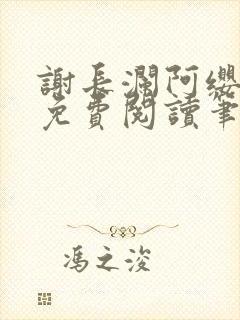 謝長瀾阿纓
免費閱讀筆
馮之浚